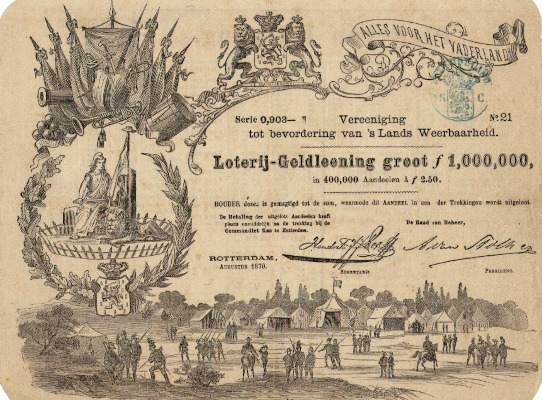 ALLES VOOR HET VADERLAND
Serie 0,903—
Vereeniging
No. 21
tot bevordering van 's Lands Weerbaarheid.
Loterij-Geldleening groot f 1,000,000,
in 400,000 Aandeelen à f 2.50.
HOUDER dezes is gemagtigd tot de som, waarmede dit AANDEEL in een der Trekkingen wordt uitgeloot.
De Betaling der uitgelote Aandeelen heeft
plaats onmiddelijk na de trekking bij de
Commandiet Kas te Rotterdam.
De Raad van Beheer,
ROTTERDAM,
AUGUSTUS 1870.
SECRETARIS
PRESIDENT.